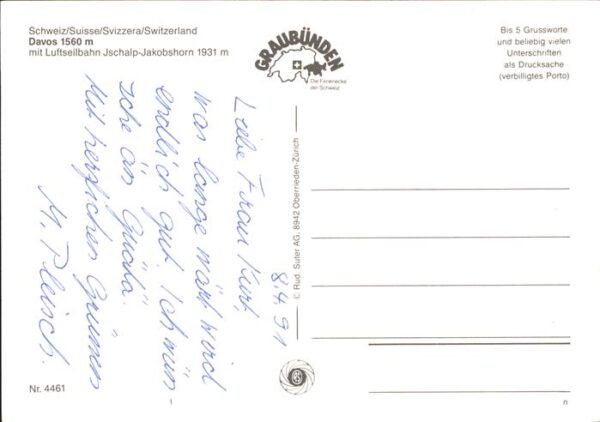 Schweiz/Suisse/Svizzera/Switzerland
Davos 1560 m
mit Luftseilbahn Jschalp-Jakobshorn 1931 m
GRAUBÜNDEN
Die Ferienecke
der Schweiz
Bis 5 Grussworte
und beliebig vielen
Unterschriften
als Drucksache
(verbilligtes Porto)
8.4.91
Liebe Frau Kurt,
was lange währt wird
endlich gut. Ich wün-
sche än Guäta.
Mit herzlichen Grüssen
M. Pleisch.
© Rud. Suter AG, 8942 Oberrieden-Zürich
Nr. 4461
1
n